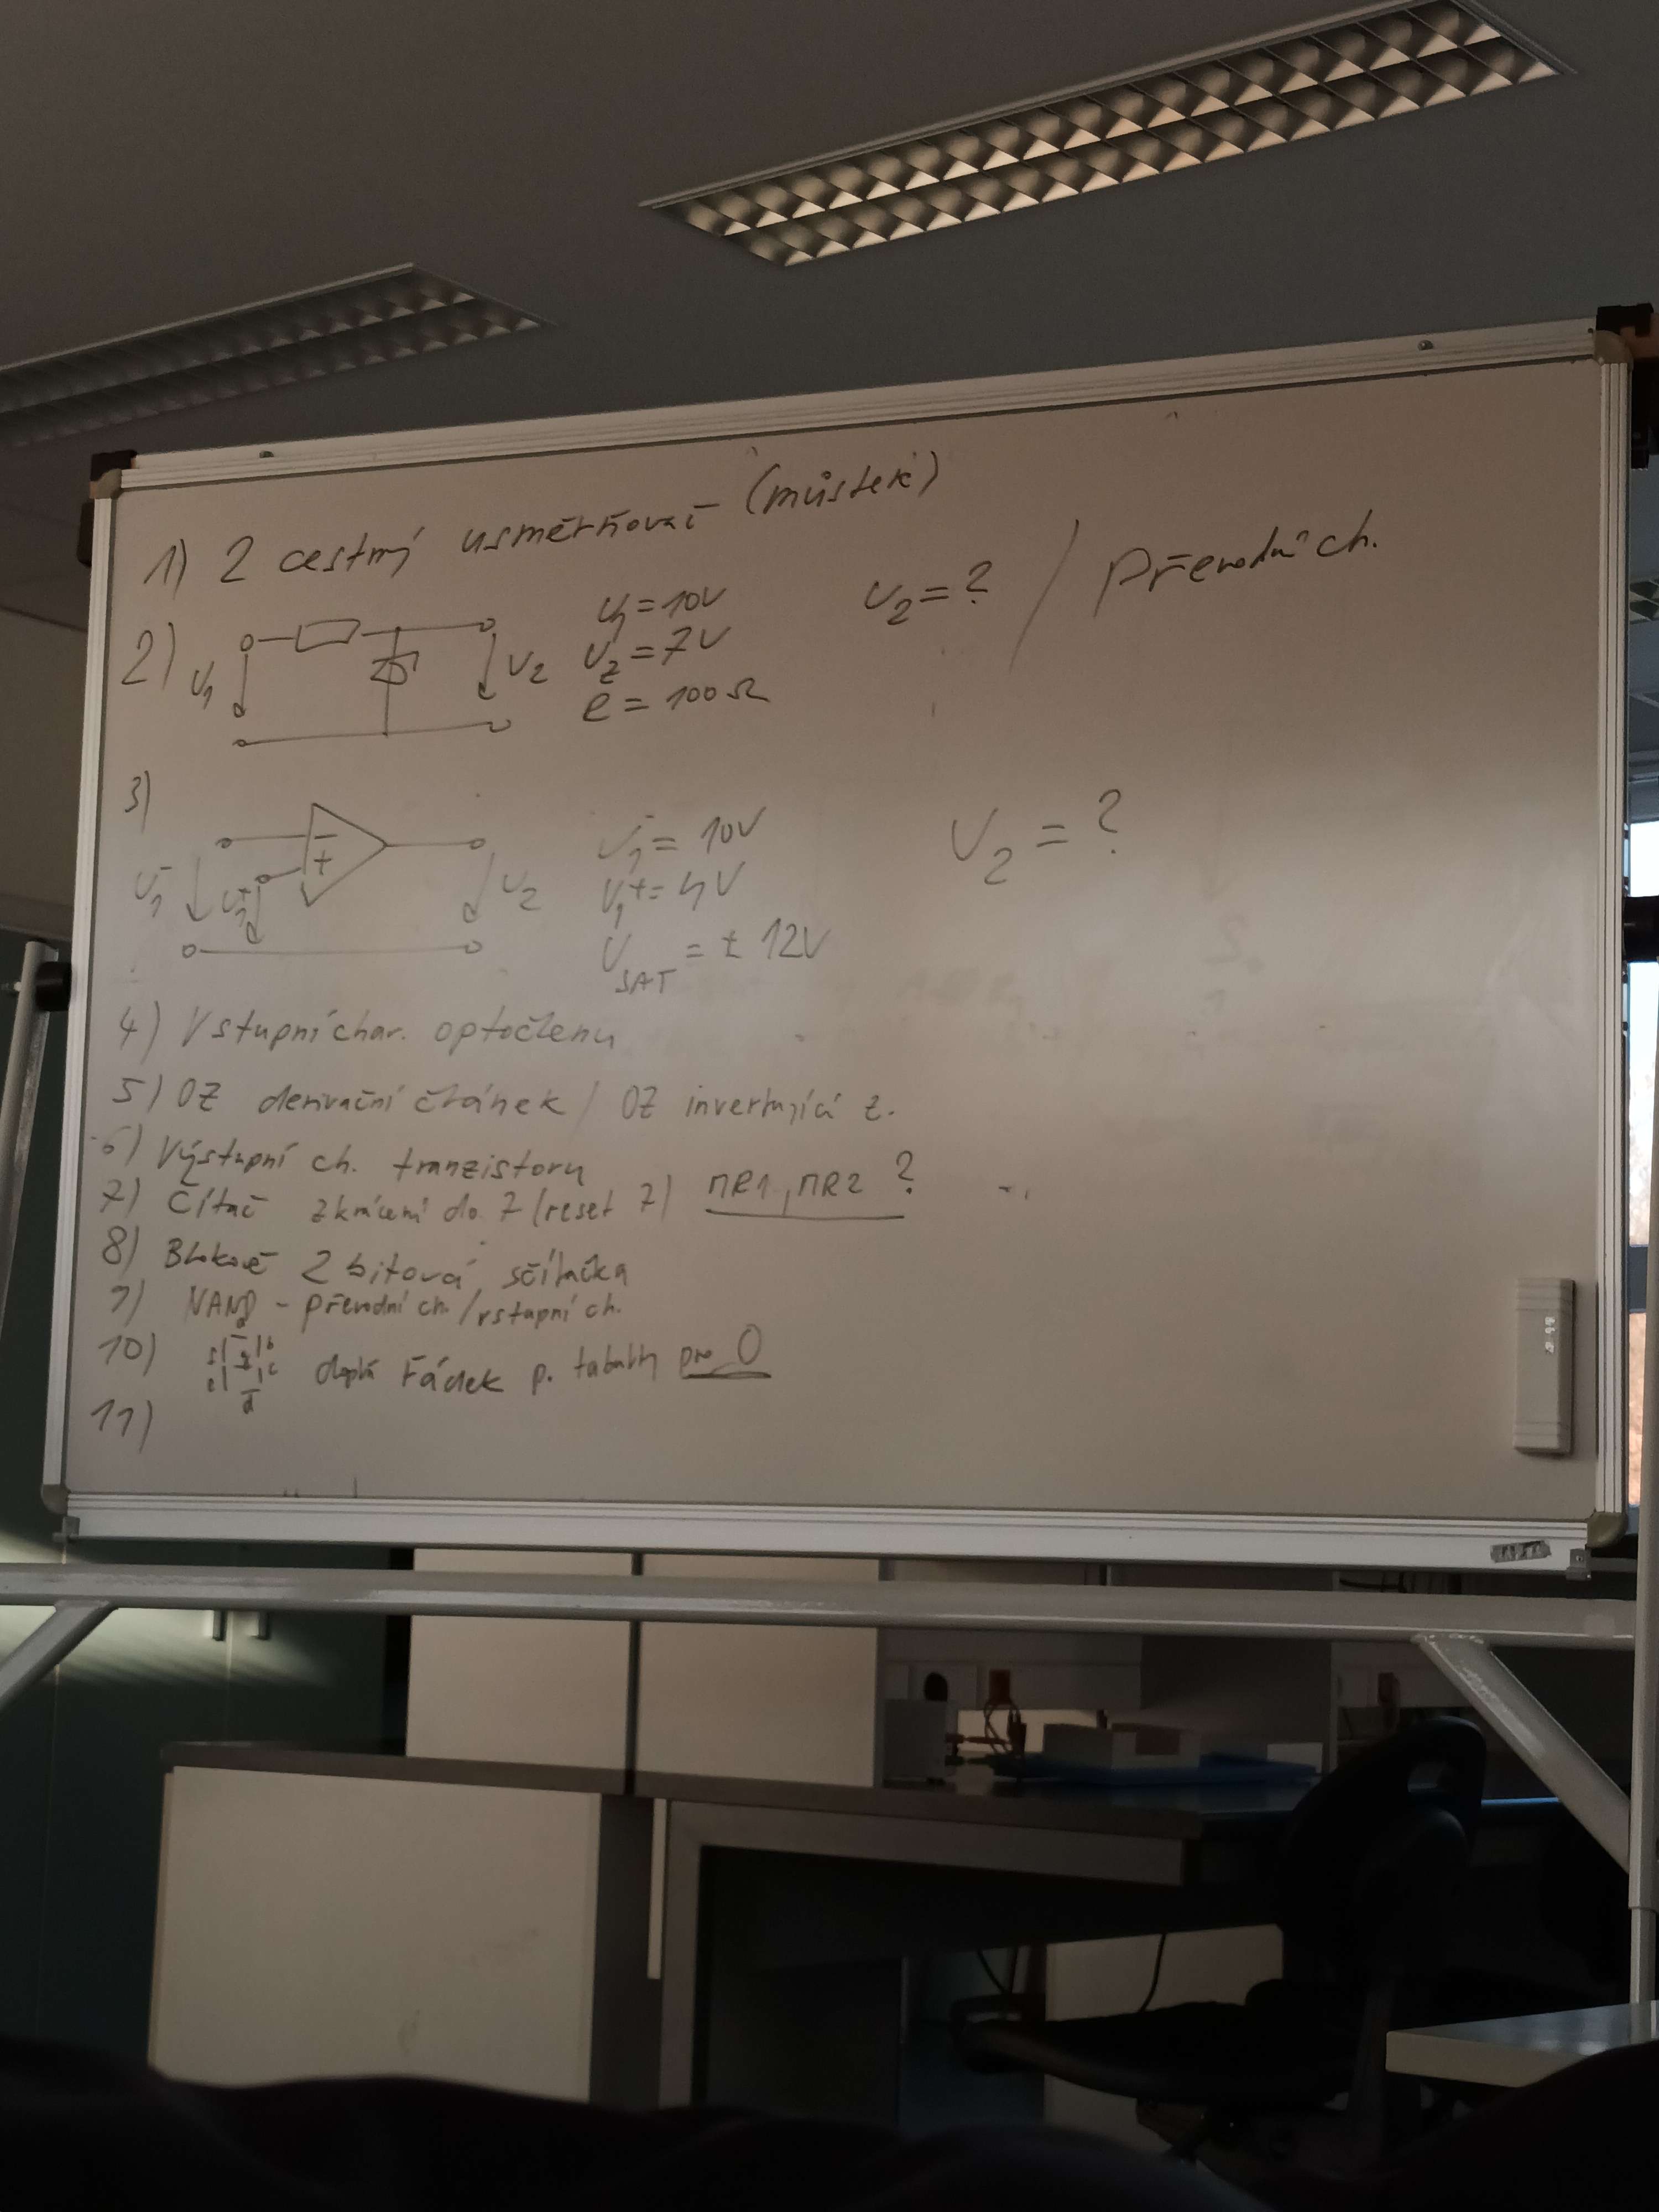 1) 2 cestný usměrňovač (můstek)
2) U1 U2 U1 = 10V U2 = ? / Převodní ch.
Uz = 7V
R = 100Ω
3) - + U1- U1+ U2 U1- = 10V U2 = ?
U1+ = 4V
USAT = ± 12V
4) Vstupní char. optočlenu
5) OZ derivační článek / OZ invertující z.
6) Výstupní ch. tranzistoru
7) Čítač zkrácení do 7 (reset 7) MR1, MR2 ?
8) Blokově 2 bitová sčítačka
9) NAND - převodní ch. / vstupní ch.
10) g b c d řádek p. tabulky pro 0
11)